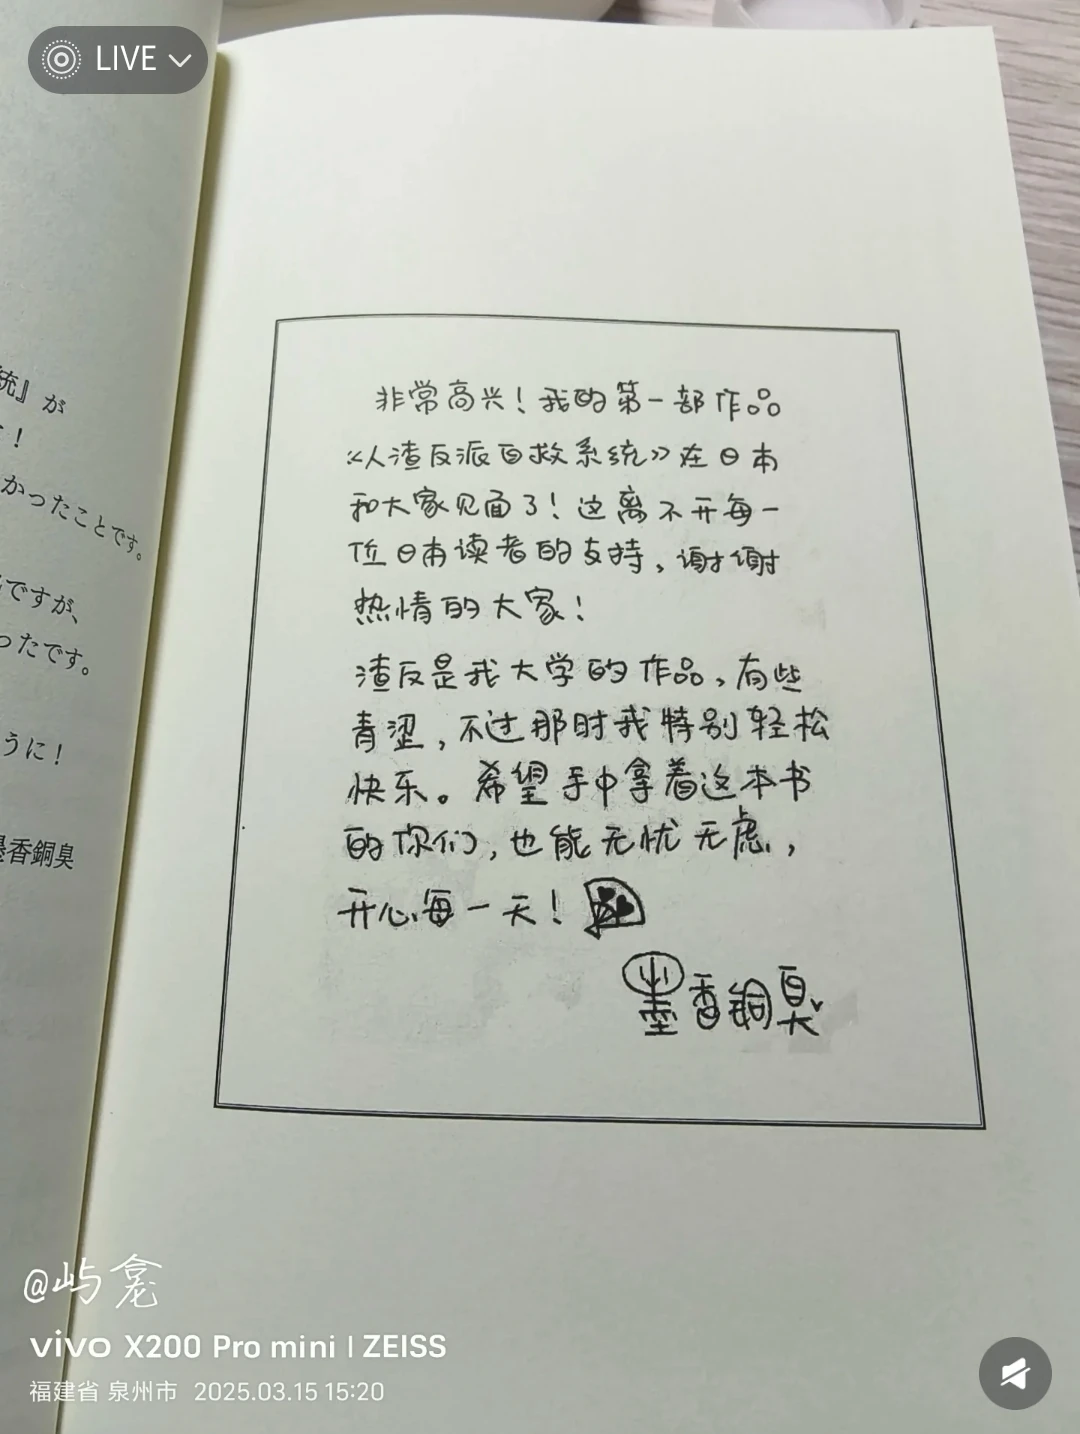 LIVE
統』が
！
かったことです。
ですが、
ったです。
うに！
墨香銅臭
非常高兴！我的第一部作品
《人渣反派自救系统》在日本
和大家见面了！这离不开每一
位日本读者的支持，谢谢
热情的大家！
渣反是我大学的作品，有些
青涩，不过那时我特别轻松
快乐。希望手中拿着这本书
的你们，也能无忧无虑，
开心每一天！
墨香銅臭
@屿龛
vivo X200 Pro mini | ZEISS
福建省 泉州市 2025.03.15 15:20